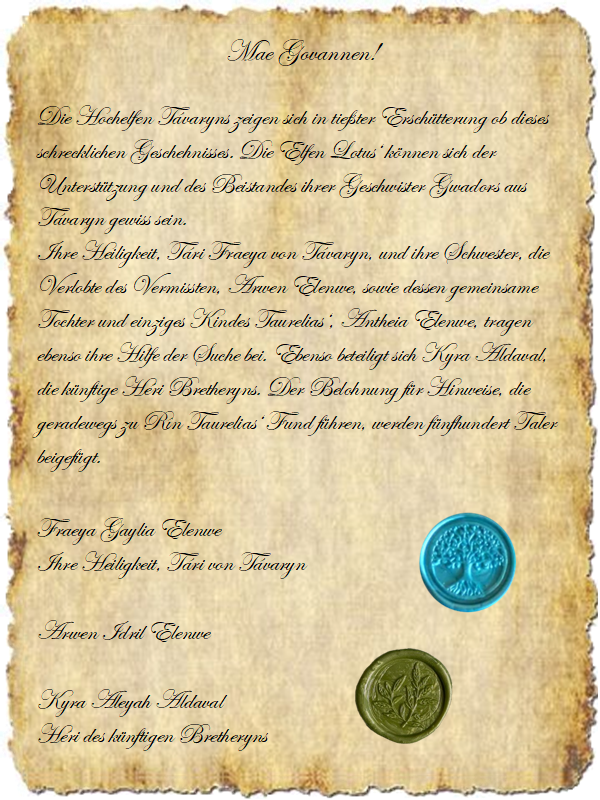 Mae Govannen!
Die Hochelfen Távaryns zeigen sich in tiefster Erschütterung ob dieses
schrecklichen Geschehnisses. Die Elfen Lotus' können sich der
Unterstützung und des Beistandes ihrer Geschwister Gwadors aus
Távaryn gewiss sein.
Ihre Heiligkeit, Tári Fraeya von Távaryn, und ihre Schwester, die
Verlobte des Vermissten, Arwen Elenwe, sowie dessen gemeinsame
Tochter und einziges Kindes Taurelias', Antheia Elenwe, tragen
ebenso ihre Hilfe der Suche bei. Ebenso beteiligt sich Kyra Aldaval,
die künftige Heri Bretheryns. Der Belohnung für Hinweise, die
geradewegs zu Rin Taurelias' Fund führen, werden fünfhundert Taler
beigefügt.
Fraeya Gaylia Elenwe
Ihre Heiligkeit, Tári von Távaryn
Arwen Idril Elenwe
Kyra Aleyah Aldaval
Heri des künftigen Bretheryns